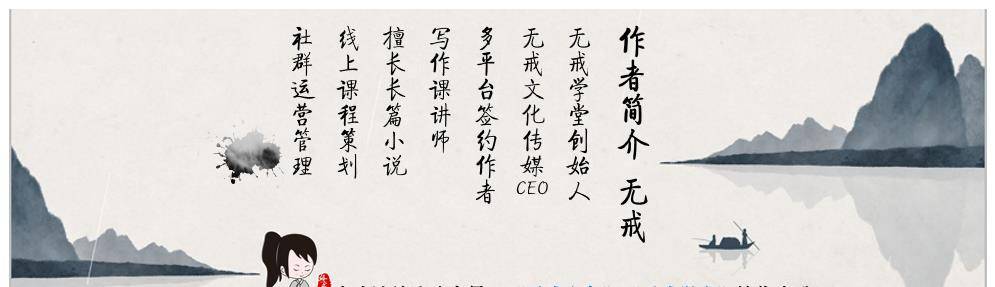 作者简介 无戒
无戒学堂创始人
无戒文化传媒CEO
多平台签约作者
写作课讲师
擅长长篇小说
线上课程策划
社群运营管理